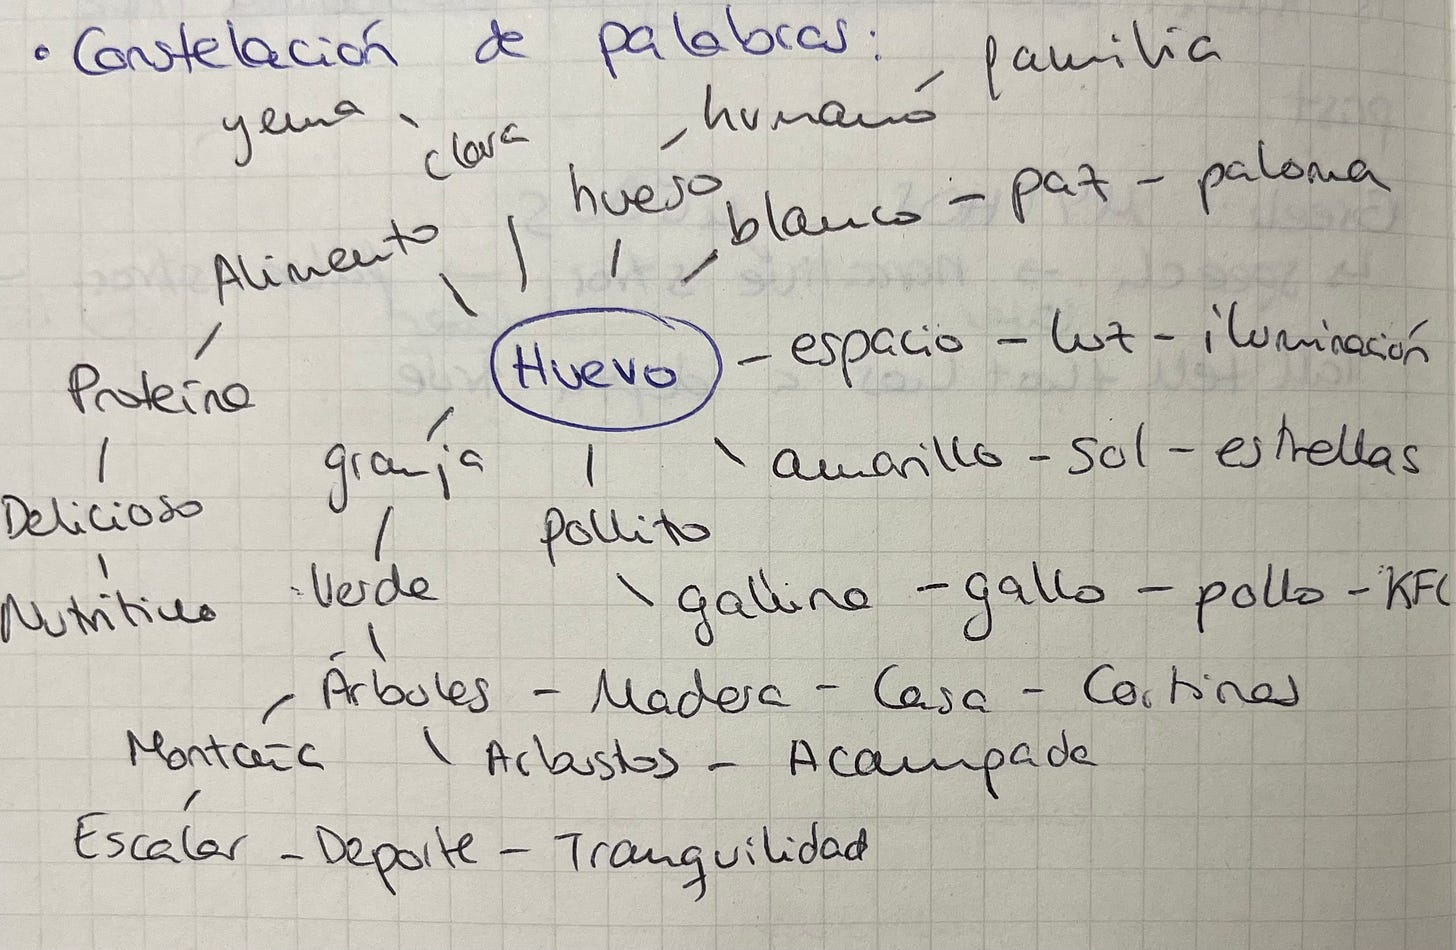 • Constelación de palabras:
yema - clara
hueso - humano - familia
blanco - paz - paloma
Alimento
Huevo - espacio - luz - iluminación
Proteína
granja
amarillo - sol - estrellas
Delicioso
pollito
Verde
Nutritivo
gallina - gallo - pollo - KFC
Árboles - Madera - Casa - Cortinas
Montaña
Arbustos - Acampada
Escalar - Deporte - Tranquilidad